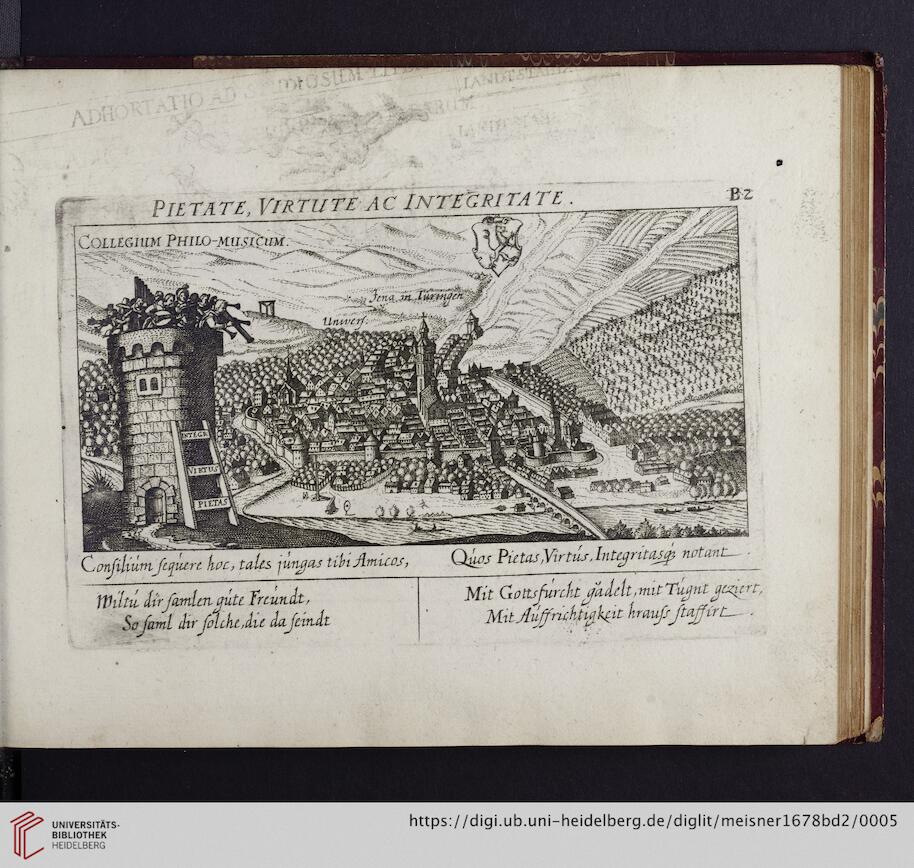 ADHORTATIO AD
PIETATE, VIRTUTE AC INTEGRITATE.
B 2
COLLEGIUM PHILO-MUSICUM.
Jena in Türingen
Univers.
INTEGR
VIRTUS
PIETAS
Consiliúm sequere hoc, tales júngas tibi Amicos,
Qúos Pietas, Virtús, Integritasq; notant.
Wiltú dir samlen gúte Freúndt,
So saml dir solche, die da seindt
Mit Gottsfúrcht gädelt, mit Túgnt geziert,
Mit Aúffrichtigkeit hrauſs staffirt.
UNIVERSITÄTS-
BIBLIOTHEK
HEIDELBERG
https://digi.ub.uni-heidelberg.de/diglit/meisner1678bd2/0005